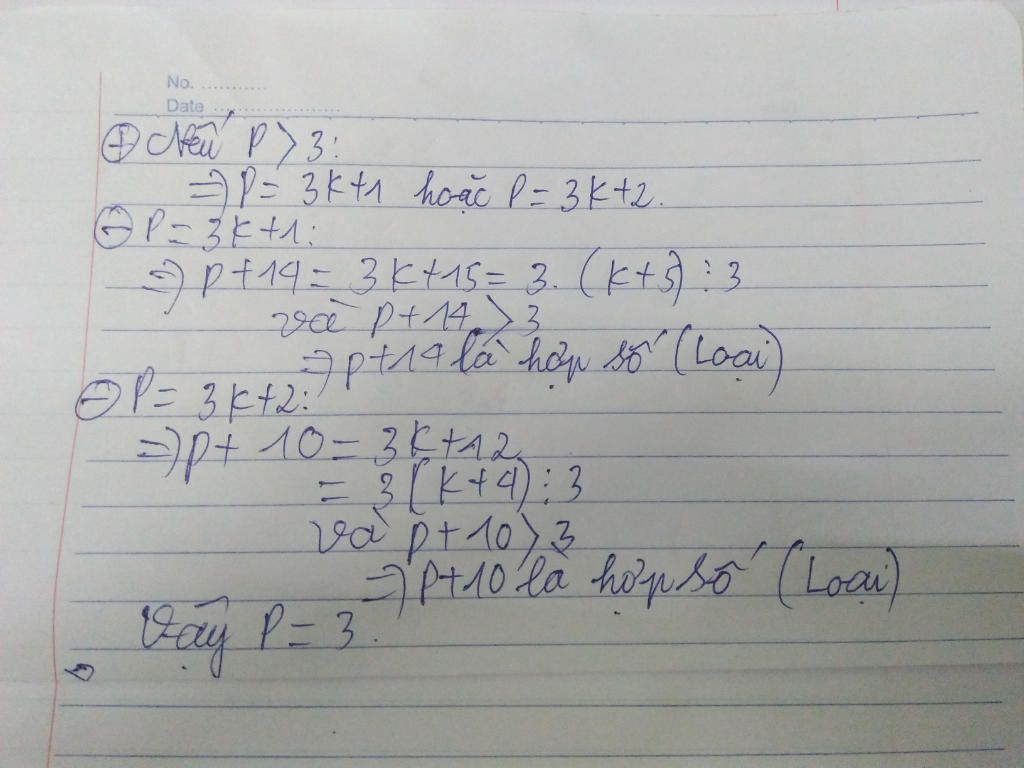 No. ............
Date ........................
⊕ Nếu P > 3:
=> P = 3k+1 hoặc P = 3k+2.
⊖ P = 3k+1:
=> p+14 = 3k+15 = 3. (k+5) ⋮ 3
và p+14 > 3
=> p+14 là hợp số (Loại)
⊖ P = 3k+2:
=> p+ 10 = 3k+12
= 3(k+4) ⋮ 3
và p+10 > 3
=> p+10 là hợp số (Loại)
Vậy P = 3.